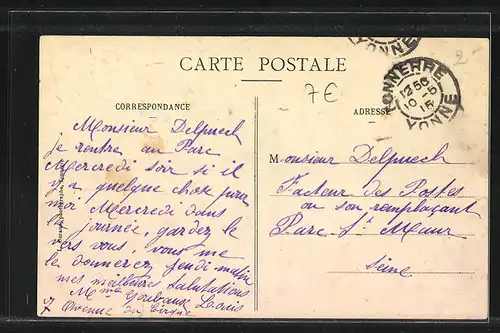 CARTE POSTALE
CORRESPONDANCE
ADRESSE
7€
2-
YONNE
TONNERRE
12 50
10 -5
15
YONNE
Monsieur Delpuech
je rentre au Parc
Mercredi soir si il
y a quelque chose pour
moi Mercredi dans
la journée, gardez le
vers vous, vous me
le donnerez jeudi matin
mes meilleures salutations
Mme Louis
7 Avenue du Cirque
Monsieur Delpuech
Facteur des Postes
ou son remplaçant
Parc St Maur
Seine